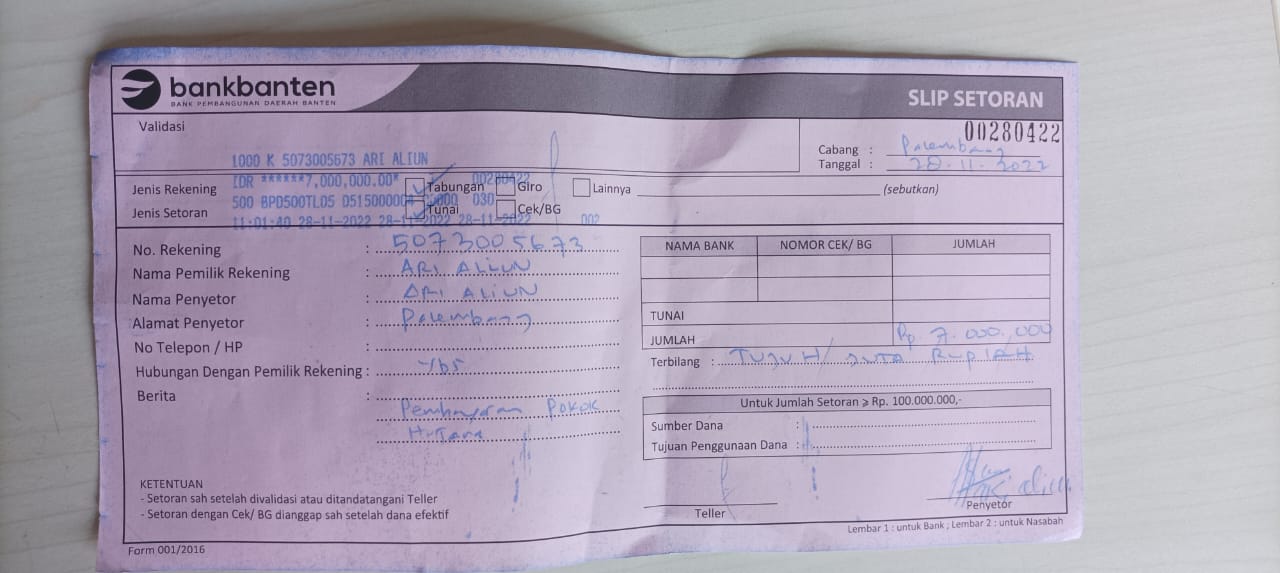 bankbanten
BANK PEMBANGUNAN DAERAH BANTEN
SLIP SETORAN
Validasi
00280422
Cabang : Palembang
Tanggal : 28.11.2022
1000 K 5073005673 ARI ALIUN
IDR ******7,000,000.00* 00280422
Jenis Rekening Tabungan Giro Lainnya (sebutkan)
500 BPD500TL05 0515000004 030
Jenis Setoran Tunai Cek/BG
11:01:40 28-11-2022 28-11-2022 28-11-2022 002
No. Rekening : 5073005673
Nama Pemilik Rekening : ARI ALIUN
Nama Penyetor : ARI ALIUN
Alamat Penyetor : Palembang
No Telepon / HP :
Hubungan Dengan Pemilik Rekening : Ybs
Berita : Pembayaran Pokok
Hutang
NAMA BANK NOMOR CEK/ BG JUMLAH
TUNAI
JUMLAH Rp 7.000.000
Terbilang : TUJUH JUTA RUPIAH
Untuk Jumlah Setoran ⩾ Rp. 100.000.000,-
Sumber Dana :
Tujuan Penggunaan Dana :
KETENTUAN
- Setoran sah setelah divalidasi atau ditandatangani Teller
- Setoran dengan Cek/ BG dianggap sah setelah dana efektif
Teller
Penyetor
Lembar 1 : untuk Bank ; Lembar 2 : untuk Nasabah
Form 001/2016